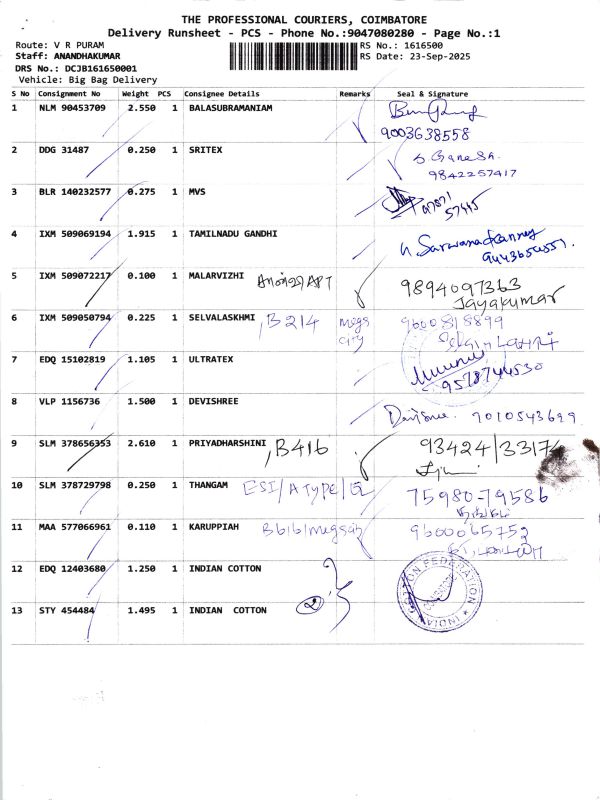 THE PROFESSIONAL COURIERS, COIMBATORE
Delivery Runsheet - PCS - Phone No.:9047080280 - Page No.:1
Route: V R PURAM RS No.: 1616500
Staff: ANANDHAKUMAR RS Date: 23-Sep-2025
DRS No.: DCJB161650001
Vehicle: Big Bag Delivery
S No Consignment No Weight PCS Consignee Details Remarks Seal & Signature
1 NLM 90453709 2.550 1 BALASUBRAMANIAM
9003638558
2 DDG 31487 0.250 1 SRITEX S. Ganesh.
9842257417
3 BLR 140232577 0.275 1 MVS
4 IXM 509069194 1.915 1 TAMILNADU GANDHI
5 IXM 509072217 0.100 1 MALARVIZHI 9894097363
Jayakumar
6 IXM 509050794 0.225 1 SELVALASKHMI ,B214 mega 9600818899
city
7 EDQ 15102819 1.105 1 ULTRATEX
9578744530
8 VLP 1156736 1.500 1 DEVISHREE
Devisree. 7010543699
9 SLM 378656353 2.610 1 PRIYADHARSHINI ,B416 93424/33174
10 SLM 378729798 0.250 1 THANGAM ESI/A TYPE/ 75980-79586
11 MAA 577066961 0.110 1 KARUPPIAH 9600065752
12 EDQ 12403680 1.250 1 INDIAN COTTON
13 STY 454484 1.495 1 INDIAN COTTON 2
COTTON FEDERATION
INDIAN